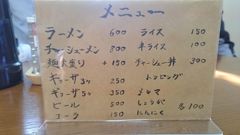 メニュー
ラーメン 600
チャーシューメン 800
麺大盛り +150
ギョーザ3ケ 250
ギョーザ5ケ 350
ビール 500
コーラ 150
ライス 150
半ライス 100
チャーシュー丼 300
トッピング
メンマ
しょうが
にんにく
各100